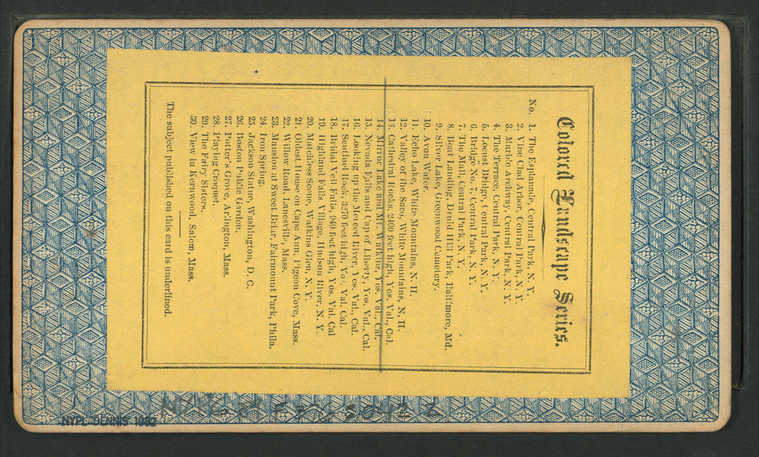 Colored Landscape Series.
No. 1. The Esplanade, Central Park, N. Y.
2. Vine Clad Arbor, Central Park, N. Y.
3. Marble Archway, Central Park, N. Y.
4. The Terrace, Central Park, N. Y.
5. Locust Bridge, Central Park, N. Y.
6. Bridge No. 7, Central Park, N. Y.
7. The Mall, Central Park, N. Y.
8. Boat Landing, Druid Hill Park, Baltimore, Md.
9. Silver Lake, Greenwood Cemetery.
10. Avon Water.
11. Echo Lake, White Mountains, N. H.
12. Valley of the Saco, White Mountains, N. H.
13. Cathedral Rocks, 2400 feet high, Yos. Val., Cal.
14. Mirror Lake and Mt. Watkins, Yos. Val., Cal.
15. Nevada Falls and Cap of Liberty, Yos. Val., Cal.
16. Looking up the Merced River, Yos. Val., Cal.
17. Sentinel Rock, 3270 feet high, Yo. Val. Cal.
18. Bridal Veil Falls, 940 feet high, Yos. Val. Cal
19. Highland Falls Village, Hudson River, N. Y.
20. Matchless Scene, Watkins Glen, N. Y.
21. Oldest House on Cape Ann, Pigeon Cove, Mass.
22. Willow Road, Lanesville, Mass.
23. Mansion at Sweet Briar, Fairmount Park, Phila.
24. Iron Spring.
25. Jackson Statue, Washington, D. C.
26. Boston Public Garden.
27. Potter's Grove, Arlington, Mass.
28. Playing Croquet.
29. The Fairy Sisters.
30. View in Kernwood, Salem, Mass.
The subject published on this card is underlined.
NYPL DENNIS 1992